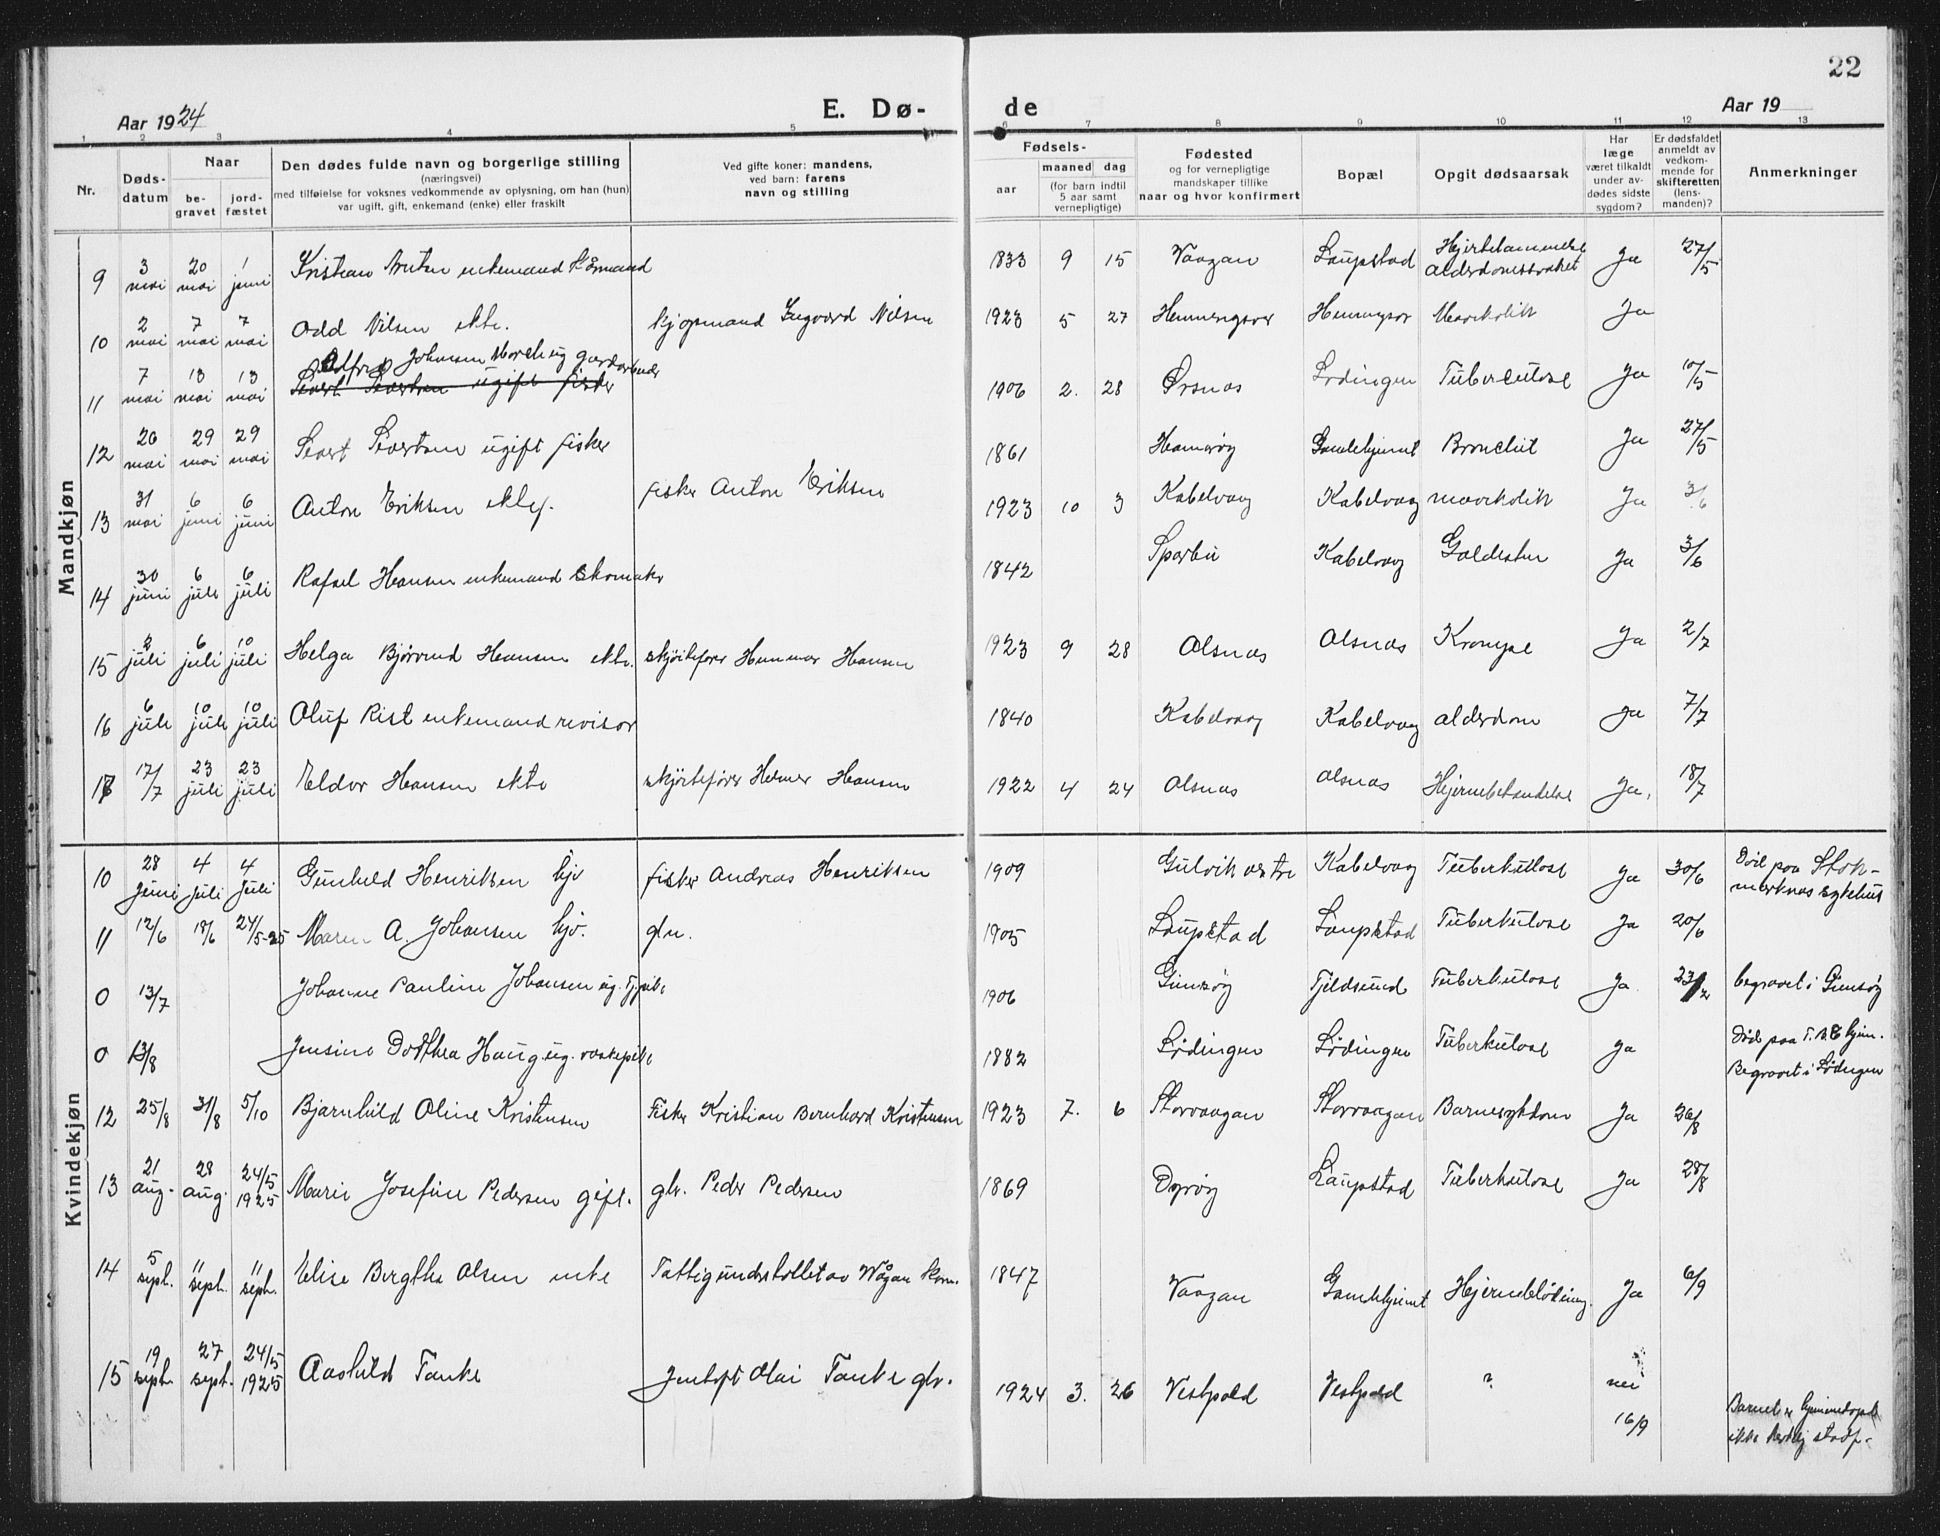 22
Aar 1924
E. Dø-
de
Aar 19
1 2 3 4 5 6 7 8 9 10 11 12 13
Nr.
Døds-
datum
Naar
be-
gravet
jord-
fæstet
Den dødes fulde navn og borgerlige stilling
(næringsvei)
med tilføielse for voksnes vedkommende av oplysning, om han (hun)
var ugift, gift, enkemand (enke) eller fraskilt
Ved gifte koner: mandens,
ved barn: farens
navn og stilling
Fødsels-
aar
maaned dag
(for barn indtil
5 aar samt
vernepligtige)
Fødested
og for vernepligtige
mandskaper tillike
naar og hvor konfirmert
Bopæl
Opgit dødsaarsak
Har
læge
været tilkaldt
under av-
dødes sidste
sygdom?
Er dødsfaldet
anmeldt av
vedkom-
mende for
skifteretten
(lens-
manden)?
Anmerkninger
Mandkjøn
9 3 mai 20 mai 1 juni Kristian enkemand 1833 9 15 Vaagan Laupstad Ja 27/5
10 2 mai 7 mai 7 mai Odd Nilsen ekte. Ingvard Nilsen 1923 5 27 Henningsvær Ja
11 7 mai 13 mai 13 mai Alfred Johansen ug gaardarbeider
Sivert Sivertsen ugift fisker 1906 2. 28 Ørsnes Lødingen Tuberculose Ja 10/5
12 20 mai 29 mai 29 mai Sivert Sivertsen ugift fisker 1861 Hamarøy Gamlehjemt Bronchit Ja 27/5
13 31 mai 6 juni 6 juni Anton Eriksen ektef. fisker Anton Eriksen 1923 10 3 Kabelvaag Kabelvaag mavekolik Ja 3/6
14 30 juni 6 juli 6 juli Rafael Hansen enkemand Skomaker 1842 Sparbu Kabelvaag Galdesten Ja 3/6
15 2 juli 6 juli 10 juli Helga Bjørvind Hansen ekte. skjøitefører Hansen 1923 9 28 Olsnas Olsnas Krampe Ja 2/7
16 6 juli 10 juli 10 juli Oluf Rist enkemand revisor 1840 Kabelvaag Kabelvaag alderdom Ja 7/7
17 17/7 23 juli 23 juli Eldor Hansen ekte skjøitefører Helmer Hansen 1922 4 24 Olsnas Olsnas Ja. 18/7
Kvindekjøn
10 28 Juni 4 Juli 4 Juli Gunhild Henriksen hjv fisker Andreas Henriksen 1909 Gulvik østre Kabelvaag Tuberkulose Ja 30/6 Død paa Stok-
merknes sykehus
11 12/6 18/6 24/5-25 Maren A. Johansen hjv. gbr. 1905 Laupstad Laupstad Tuberkulose Ja 20/6
0 13/7 Johanne Pauline Johansen ug. Tjpike 1906 Gimsøy Tjeldsund Tuberkulose Ja begravet i Gimsøy
0 13/8 Jensine Dorthea Haug ug. vaskepike 1882 Lødingen Lødingen Tuberkulose Ja Død paa T.B.C hjem.
Begravet i Lødingen
12 25/8 31/8 5/10 Bjarnhild Oline Kristensen Fisker Kristian Bernhard Kristensen 1923 7. 6 Storvaagan Storvaagan Barnesykdom Ja 26/8
13 21 aug. 28 aug. 24/5 1925 Marie Josefine Pedersen gift. gbr. Peder Pedersen 1869 Dyrøy Laupstad Tuberkulose Ja 28/8
14 5 sept. 11 sept. 11 sept. Elise Bergthe Olsen enke Fattigunderstøttet av Vågan kom. 1847 Vaagan Gamlehjemt Hjerneblødning. Ja 6/9
15 19 sept. 27 sept. 24/5 1925 Aashild Tanke Jentoft Olai Tanke gbr. 1924 3. 26 Vestpold Vestpold ? nei
16/9
Barnet er hjemmedøpt
ikke stadf.